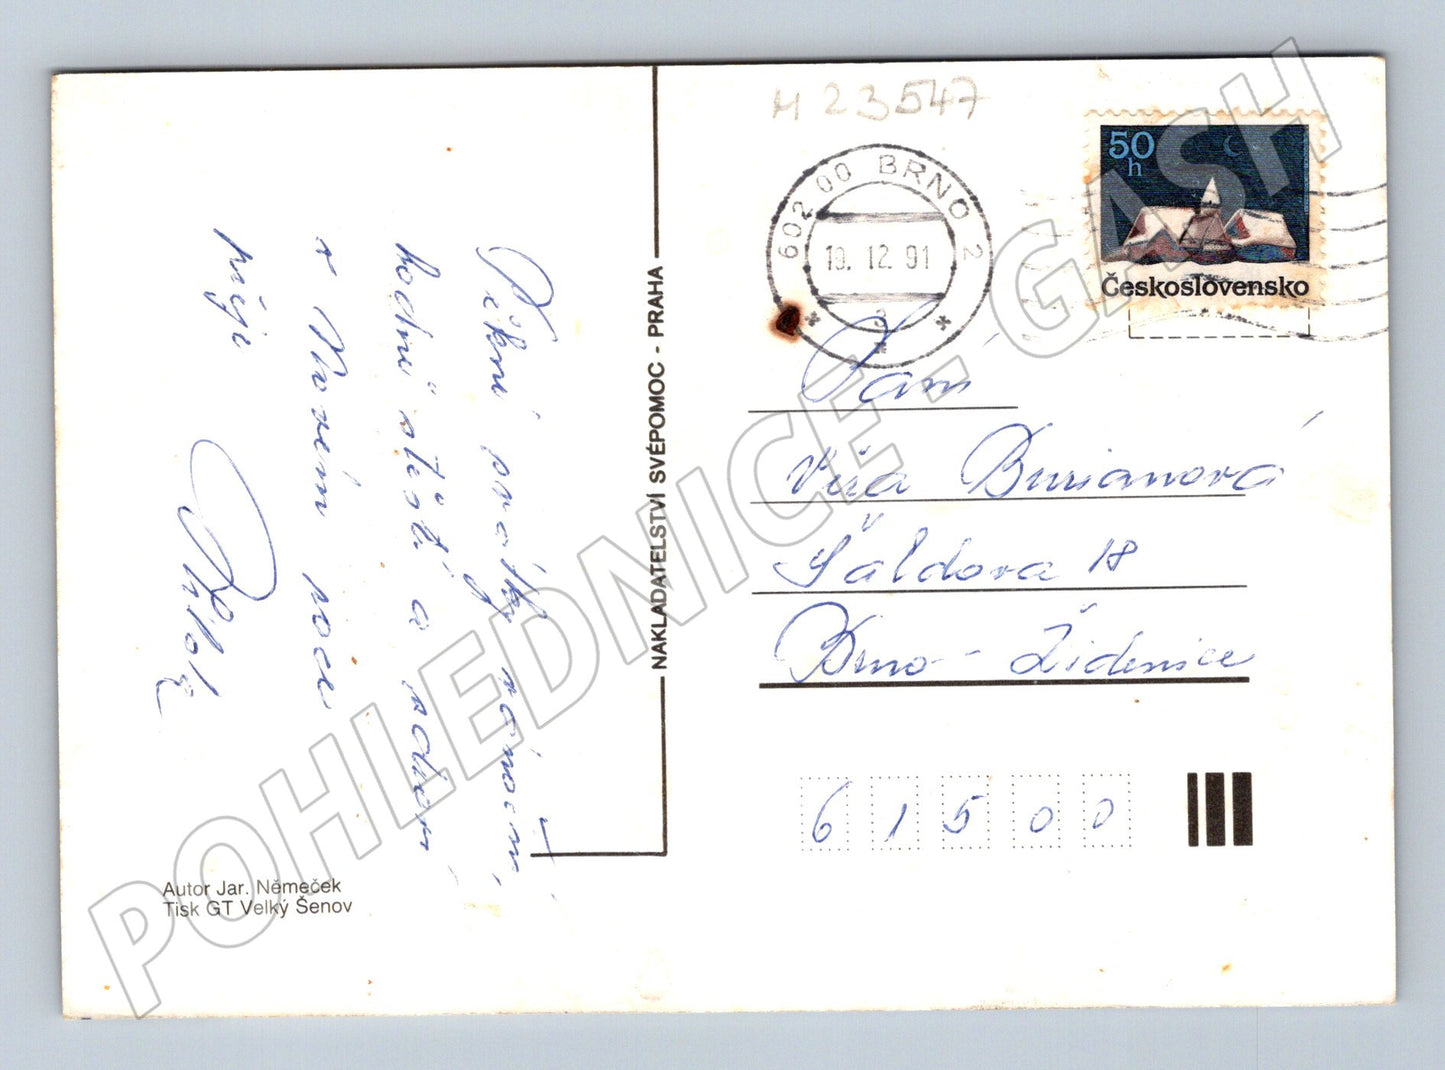 M 23547
602 00 BRNO 2
19. 12. 91
3
50
h
Československo
Pěkné svátky vánoční,
hodně štěstí a radosti
v Novém roce
přeje
NAKLADATELSTVÍ SVÉPOMOC - PRAHA
Paní
Věra Burianová
Šaldova 18
Brno - Židenice
61500
Autor Jar. Němeček
Tisk GT Velký Šenov
POHLEDNICE - GASH